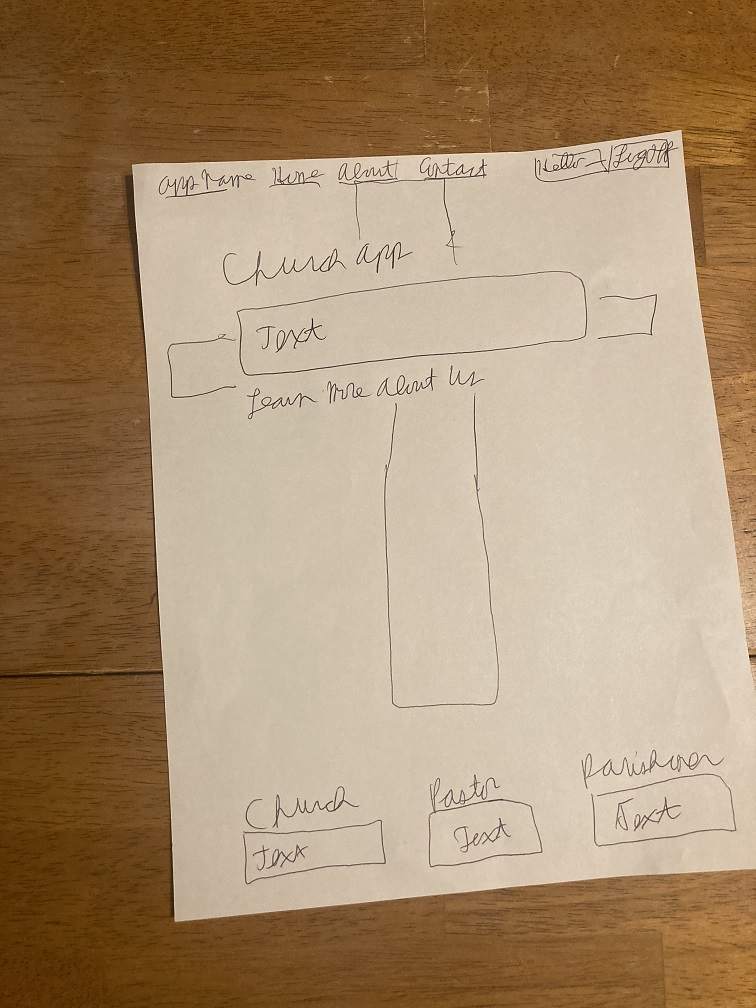 App Name Home About Contact Hello /Logoff
Church App
Text
Learn More About Us
Church Pastor Parishoner
Text Text Text